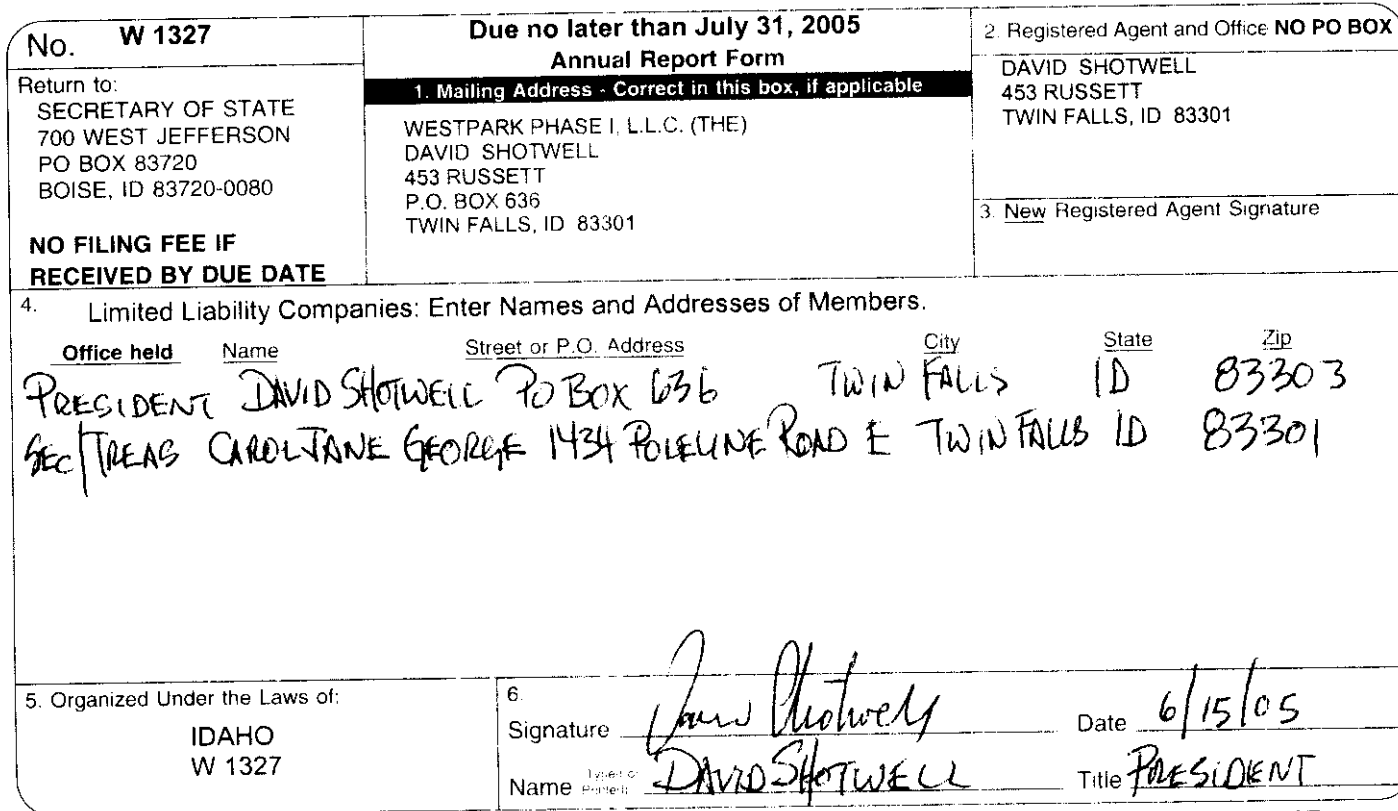 No. W 1327
Return to:
SECRETARY OF STATE
700 WEST JEFFERSON
PO BOX 83720
BOISE, ID 83720-0080
NO FILING FEE IF
RECEIVED BY DUE DATE
Due no later than July 31, 2005
Annual Report Form
1. Mailing Address - Correct in this box, if applicable
WESTPARK PHASE I, L.L.C. (THE)
DAVID SHOTWELL
453 RUSSETT
P.O. BOX 636
TWIN FALLS, ID 83301
2. Registered Agent and Office NO PO BOX
DAVID SHOTWELL
453 RUSSETT
TWIN FALLS, ID 83301
3. New Registered Agent Signature
4. Limited Liability Companies: Enter Names and Addresses of Members.
Office held Name Street or P.O. Address City State Zip
PRESIDENT DAVID SHOTWELL PO BOX 636 TWIN FALLS ID 83303
SEC/TREAS CAROL JANE GEORGE 1434 POLELINE ROAD E TWIN FALLS ID 83301
5. Organized Under the Laws of:
IDAHO
W 1327
6.
Signature David Shotwell Date 6/15/05
Name Typed or Printed: DAVID SHOTWELL Title PRESIDENT